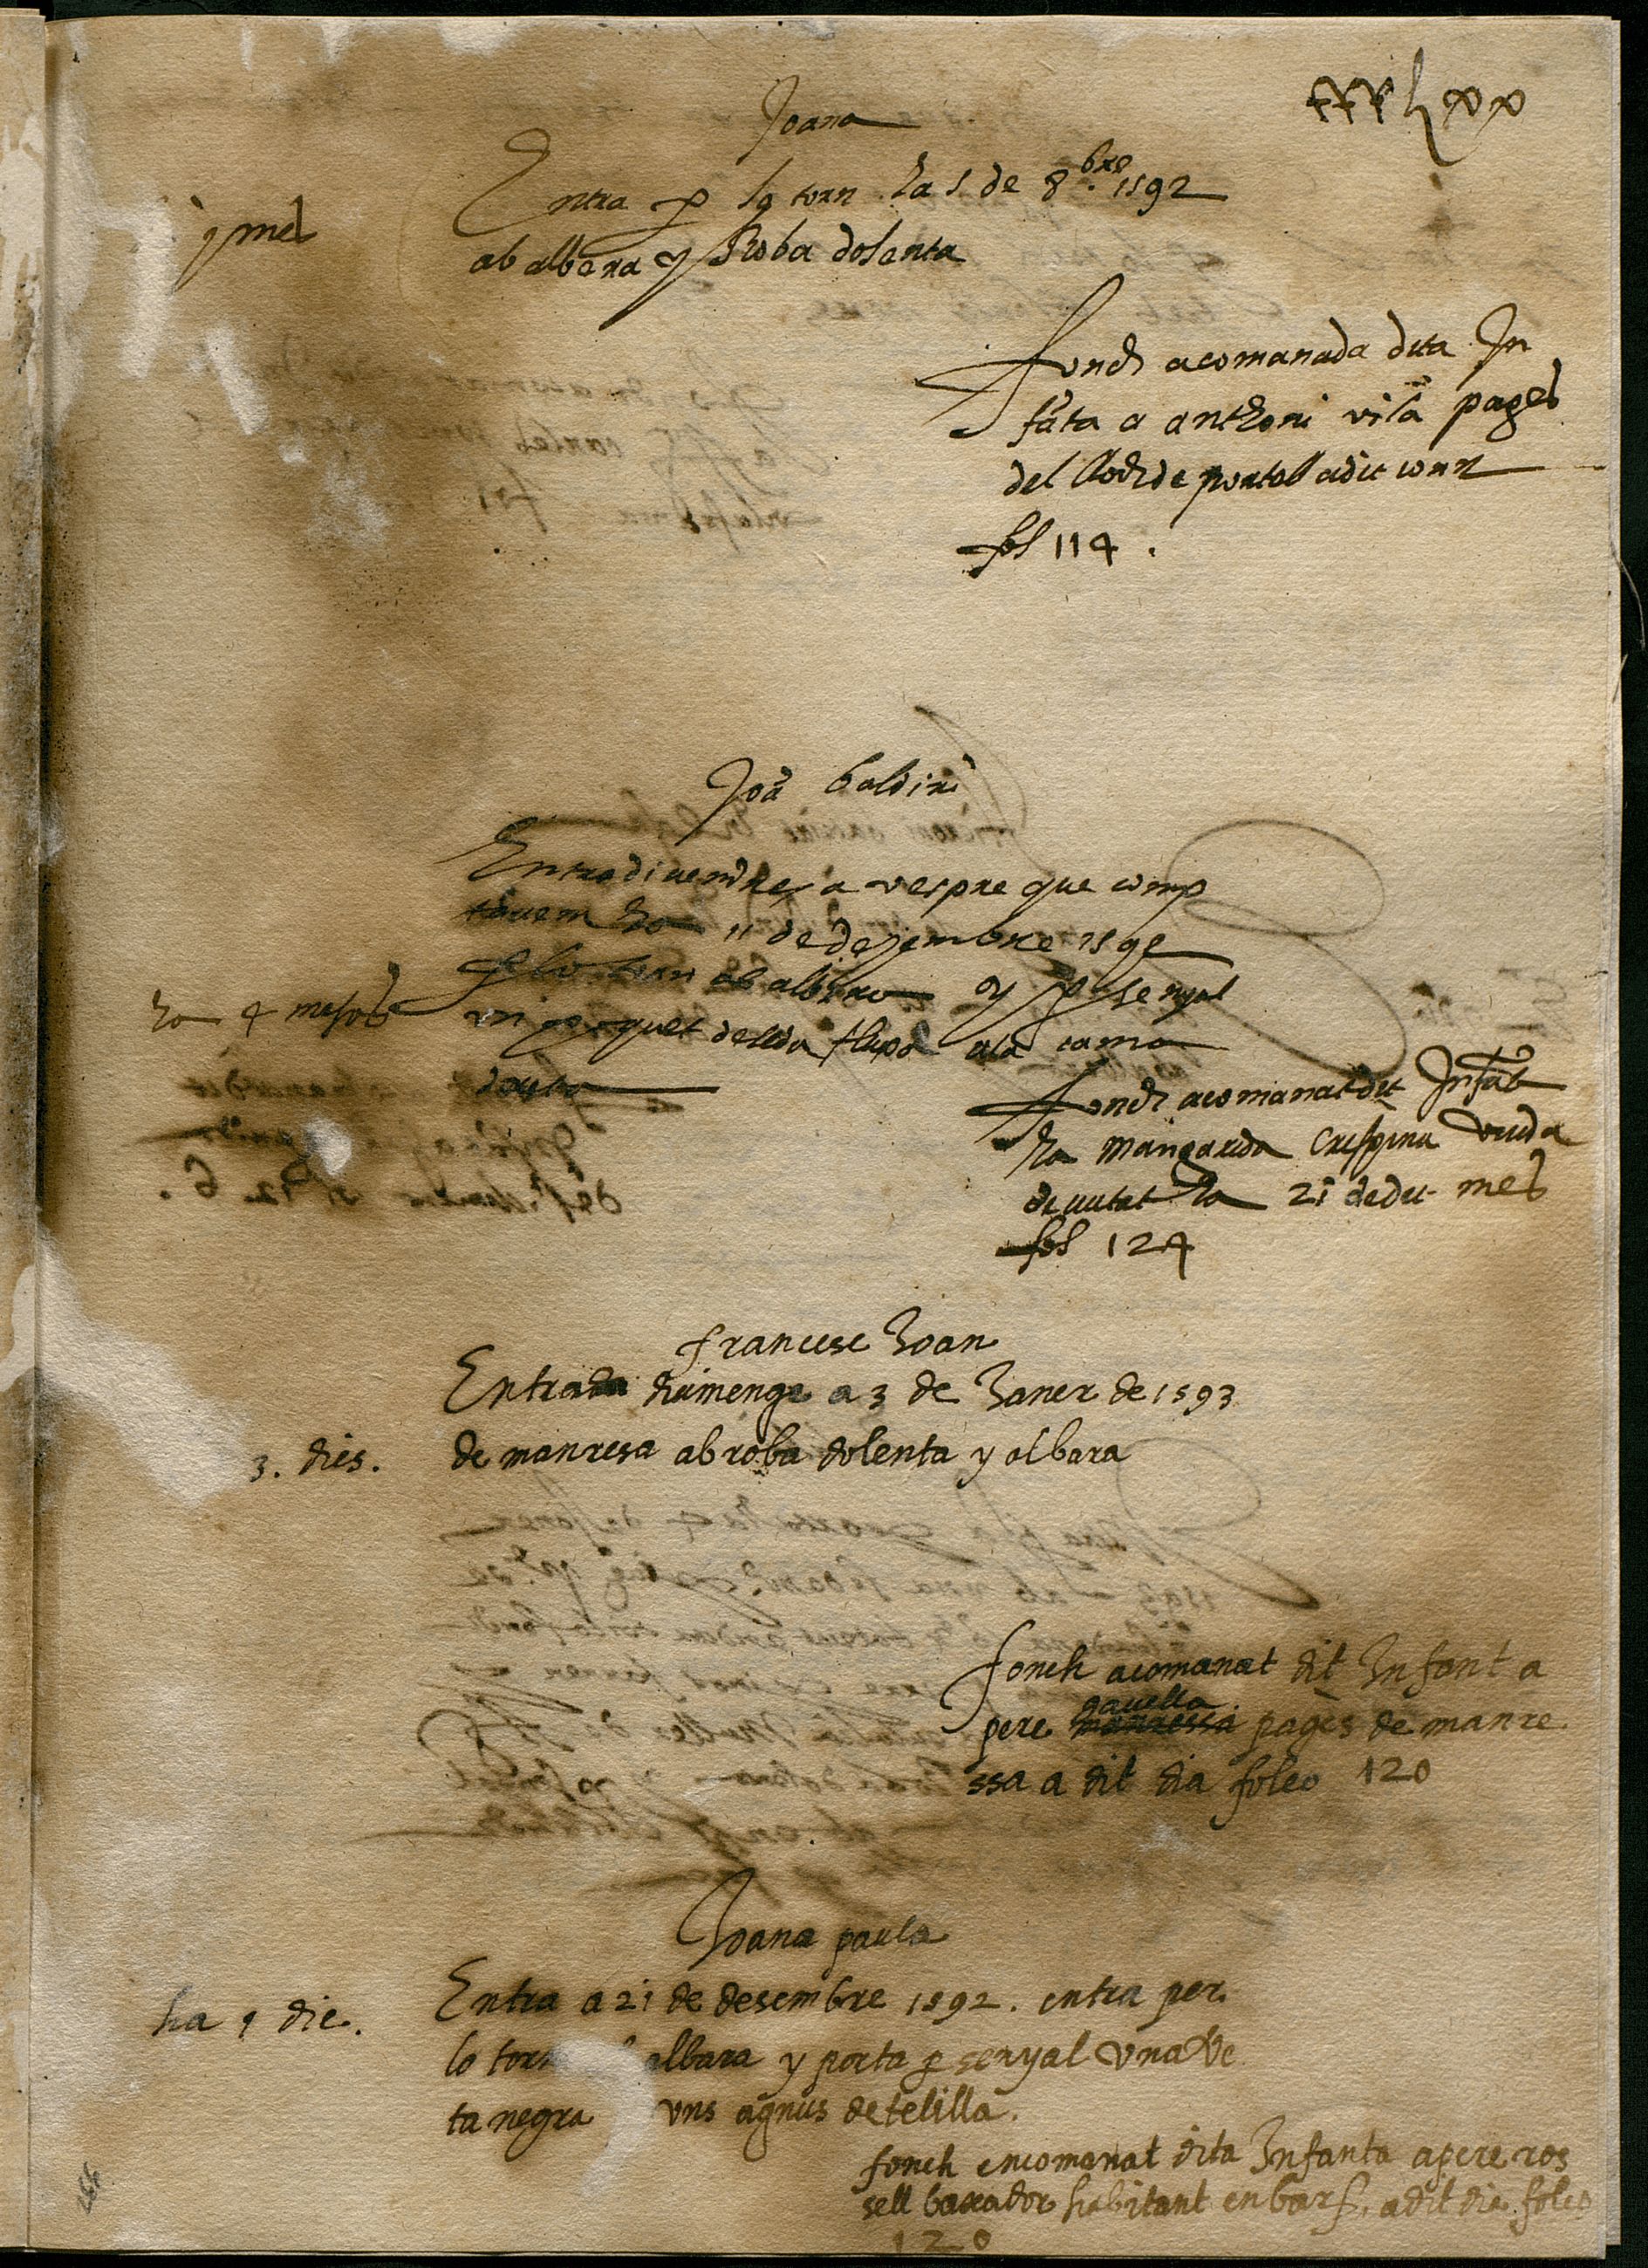 Joana
Entra p lo torn ha 5 de 8bre 1592
ab albera y Roba dolenta
j mes
fonch acomanada dita In
fata a anthoni vila pages
del lloch de portell a dit torn
fol 114 .
Joā baldiri
Entra divendres a vespre que comp
tavem ha 11 de dezembre 1592
p lo torn ab albara y p senyal
un de seda a la cama
ha 4 mesos
fonch acomanat dit Infāt
ha Mangarida Crespina viuda
de ciutat ha 21 de dit mes
fol 124
francesc Joan
Entrada diumenge a 3 de Janer de 1593
de manresa ab roba dolenta y albara
3. dies.
fonch acomanat dit Infant a
gavella
pere manressa pagès de manre
ssa a dit dia foleo 120
Joana paula
Entra a 21 de desembre 1592. entra per
ha 1 die.
lo torn albara y porta p senyal una Ve
ta negra uns agnus de telilla.
fonch encomanat dita Infanta a pere ros
sell baxador habitant en bars. a dit die foleo
120